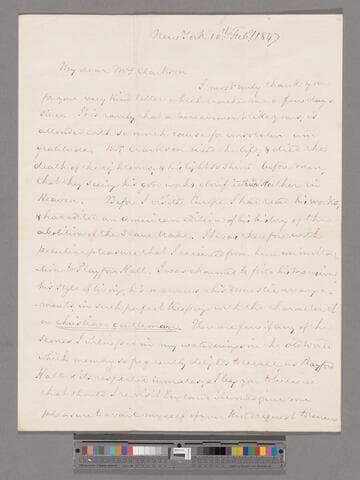 New York 10th Feby 1847
My dear Mrs Clarkson
I most truly thank you
for your very kind letter which reached me a few days
since. It is rarely that a bereavement like yours, is
attended with so much cause for consolation and
gratitude. Mr Clarkson lived the life, & died the
death of the righteous, & his light so shone before men,
that they seeing his good works glorified their Father in
Heaven. Before I visited Europe I had read his works,
& had edited an American edition of his history of the
abolition of the Slave trade. It was therefore with
peculiar pleasure that I received from him an invita-
tion to Playford Hall. I was charmed to find his mansion
his style of living, his manners, his domestic arrange-
ments, in such perfect keeping with the character of
a Christian gentleman. There are few if any of the
scenes I witnessed in my wanderings in the old world
which memory so frequently delights to recall as Playford
Hall & its respected inmates, & I beg you to believe
that should I revisit England it would give me
pleasure to avail myself of your kind request to renew